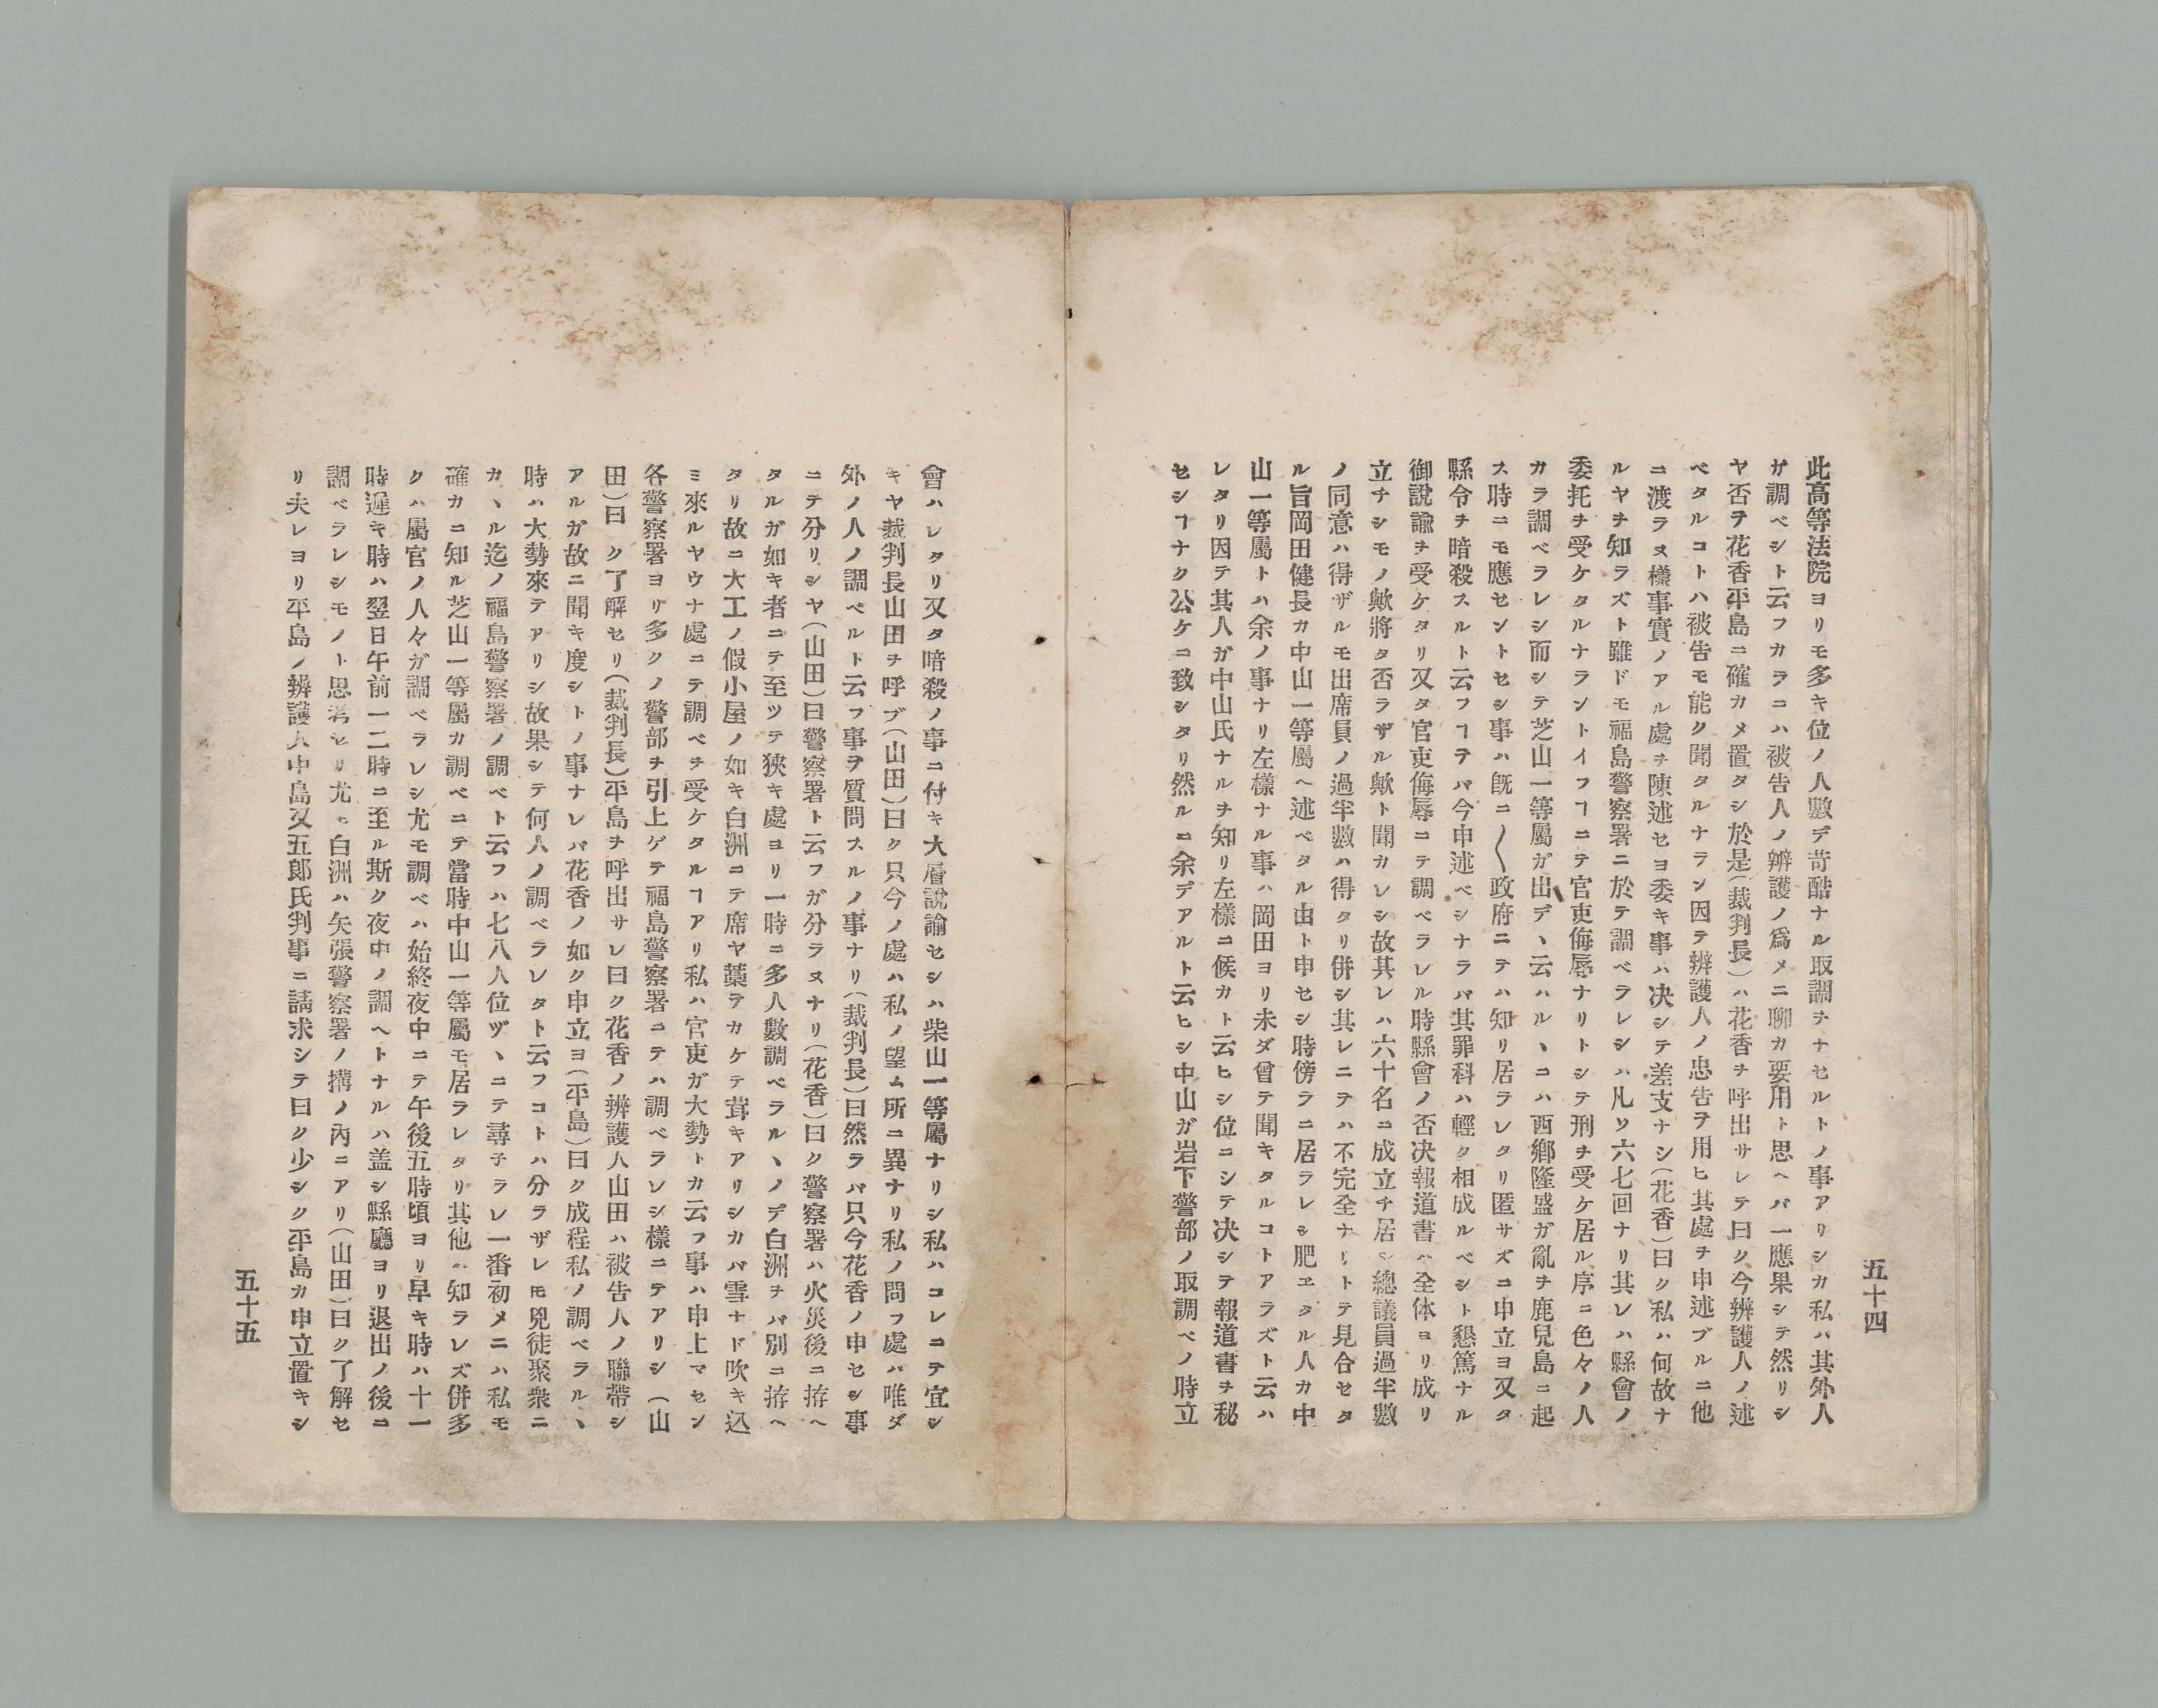 五十四
此高等法院ヨリモ多キ位ノ人數デ苛酷ナル取調ヲナセルトノ事アリシカ私ハ其外人
ガ調ベシト云フカラニハ被告人ノ辨護ノ爲メニ聊カ要用ト思ヘバ一應果シテ然リシ
ヤ否ヲ花香平島ニ確カメ置タシ於是(裁判長)ハ花香ヲ呼出サレテ曰ク今辨護人ノ述
ベタルコトハ被告モ能ク聞タルナラン因テ辨護人ノ忠告ヲ用ヒ其處ヲ申述ブルニ他
ニ渡ラヌ樣事實ノアル處ヲ陳述セヨ委キ事ハ决シテ差支ナシ(花香)曰ク私ハ何故ナ
ルヤヲ知ラズト雖ドモ福島警察署ニ於テ調ベラレシハ凡ソ六七回ナリ其レハ縣會ノ
委托ヲ受ケタルナラントイフヿニテ官吏侮辱ナリトシテ刑ヲ受ケ居ル序ニ色々ノ人
カラ調ベラレシ而シテ芝山一等屬ガ出デ、云ハル、ニハ西鄕隆盛ガ亂ヲ鹿兒島ニ起
ス時ニモ應セントセシ事ハ旣ニ〱政府ニテハ知リ居ラレタリ匿サズニ申立ヨ又タ
縣令ヲ暗殺スルト云フヿヲバ今申述ベシナラバ其罪科ハ輕ク相成ルベシト懇篤ナル
御說諭ヲ受ケタリ又タ官吏侮辱ニテ調ベラレル時縣會ノ否决報道書ハ全体ヨリ成リ
立チシモノ歟將タ否ラザル歟ト聞カレシ故其レハ六十名ニ成立チ居ル總議員過半數
ノ同意ハ得ザルモ出席員ノ過半數ハ得タリ併シ其レニテハ不完全ナリトテ見合セタ
ル旨岡田健長カ中山一等屬ヘ述ベタル由ト申セシ時傍ラニ居ラレシ肥ヱタル人カ中
山一等屬トハ余ノ事ナリ左樣ナル事ハ岡田ヨリ未ダ曾テ聞キタルコトアラズト云ハ
レタリ因テ其人ガ中山氏ナルヲ知リ左樣ニ候カト云ヒシ位ニシテ决シテ報道書ヲ秘
セシヿナク公ケニ致シタリ然ルニ余デアルト云ヒシ中山ガ岩下警部ノ取調ベノ時立
會ハレタリ又タ暗殺ノ事ニ付キ大層說諭セシハ柴山一等屬ナリシ私ハコレニテ宜シ
キヤ裁判長山田ヲ呼ブ(山田)曰ク只今ノ處ハ私ノ望ム所ニ異ナリ私ノ問フ處ハ唯ダ
外ノ人ノ調ベルト云フ事ヲ質問スルノ事ナリ(裁判長)曰然ラバ只今花香ノ申セシ事
ニテ分リシヤ(山田)曰警察署ト云フガ分ラヌナリ(花香)曰ク警察署ハ火災後ニ拵ヘ
タルガ如キ者ニテ至ツテ狹キ處ヨリ一時ニ多人數調ベラル、ノデ白洲ヲバ別ニ拵ヘ
タリ故ニ大工ノ假小屋ノ如キ白洲ニテ席ヤ藁ヲカケテ葺キアリシカバ雪ナド吹キ込
ミ來ルヤウナ處ニテ調ベヲ受ケタルヿアリ私ハ官吏ガ大勢トカ云フ事ハ申上マセン
各警察署ヨリ多クノ警部ヲ引上ゲテ福島警察署ニテハ調ベラレシ樣ニテアリシ(山
田)曰ク了解セリ(裁判長)平島ヲ呼出サレ曰ク花香ノ辨護人山田ハ被告人ノ聯帶シ
アルガ故ニ聞キ度シトノ事ナレバ花香ノ如ク申立ヨ(平島)曰ク成程私ノ調ベラル、
時ハ大勢來テアリシ故果シテ何人ノ調ベラレタト云フコトハ分ラザレモ兇徒聚衆ニ
カ、ル迄ノ福島警察署ノ調ベト云フハ七八人位ヅ、ニテ尋子ラレ一番初メニハ私モ
確カニ知ル芝山一等屬カ調ベニテ當時中山一等屬モ居ラレタリ其他ハ知ラレズ併多
クハ屬官ノ人々ガ調ベラレシ尤モ調ベハ始終夜中ニテ午後五時頃ヨリ早キ時ハ十一
時遲キ時ハ翌日午前一二時ニ至ル斯ク夜中ノ調ヘトナルハ盖シ縣廳ヨリ退出ノ後ニ
調ベラレシモノト思考セリ尤モ白洲ハ矢張警察署ノ搆ノ內ニアリ(山田)曰ク了解セ
リ夫レヨリ平島ノ辨護人中島又五郞氏判事ニ請求シテ曰ク少シク平島カ申立置キシ
五十五